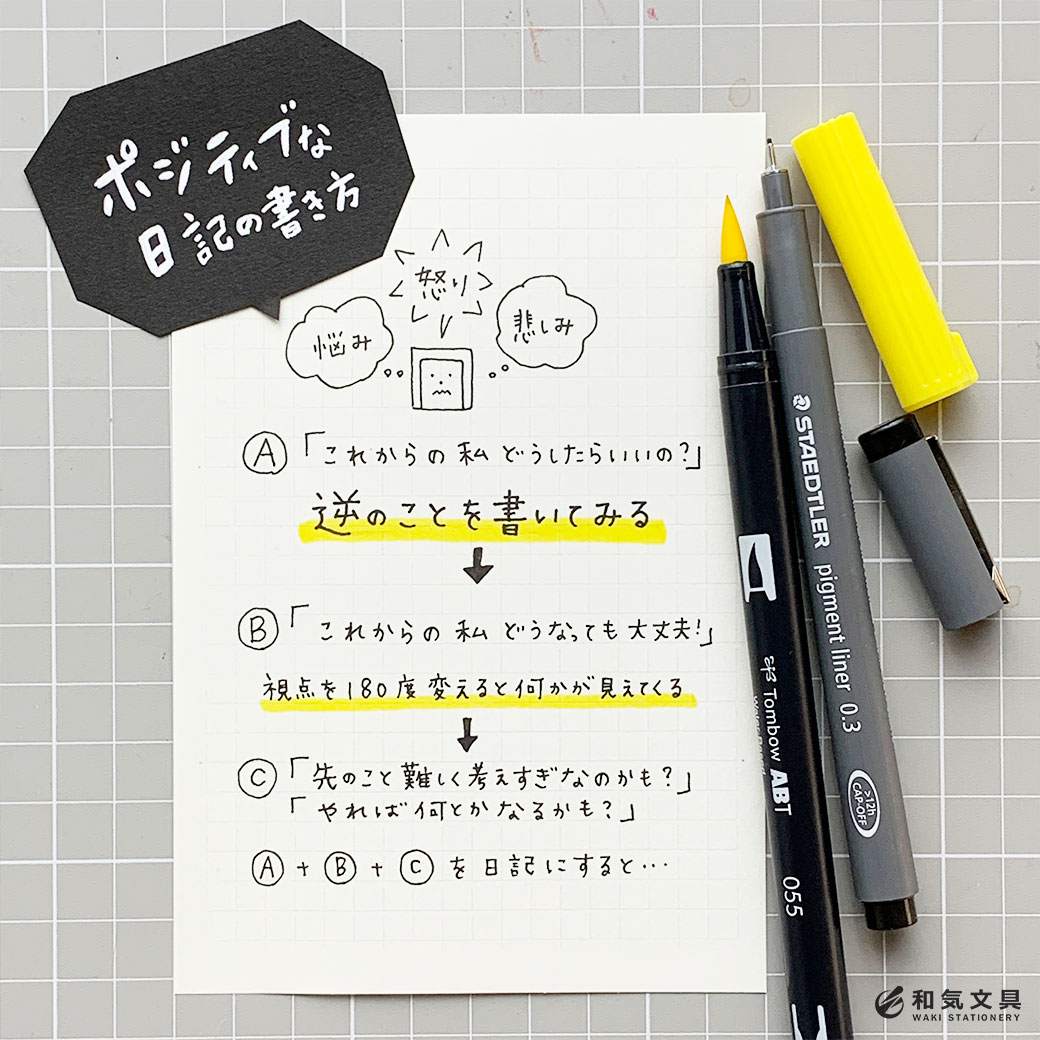 ポジティブな
日記の書き方
怒り
悩み
悲しみ
Ⓐ「これからの私 どうしたらいいの？」
逆のことを書いてみる
Ⓑ「これからの私 どうなっても大丈夫！」
視点を180度変えると何かが見えてくる
Ⓒ「先のこと難しく考えすぎなのかも？」
「やれば何とかなるかも？」
Ⓐ＋Ⓑ＋Ⓒを日記にすると…
STAEDTLER pigment liner 0.3
>12h
CAP-OFF
Tombow ABT
055
和気文具
WAKI STATIONERY